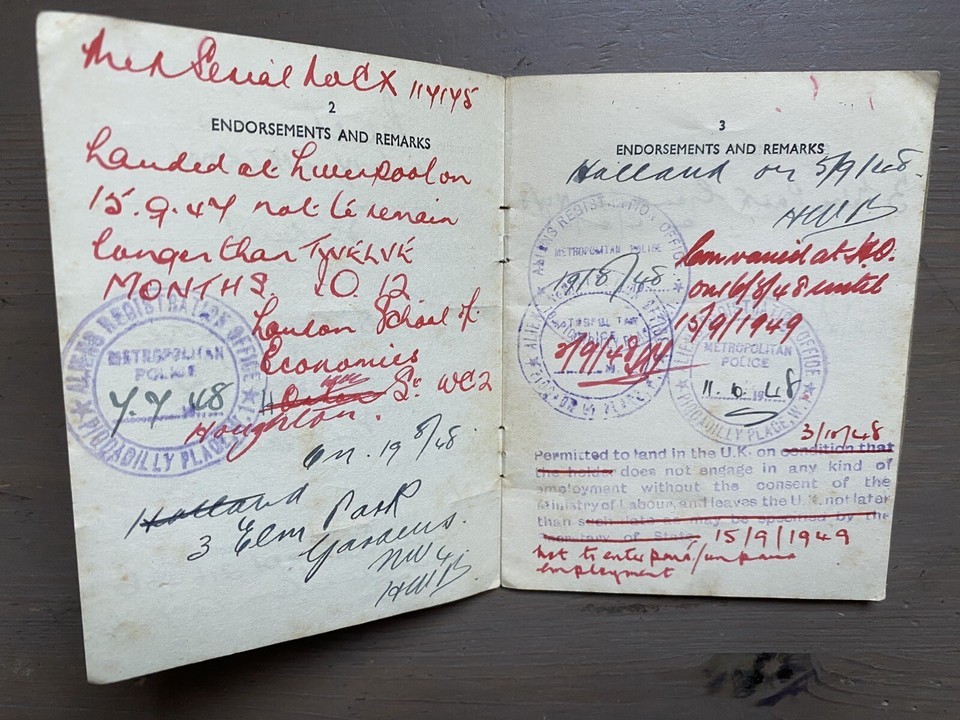 Serial No CX 114148
2
ENDORSEMENTS AND REMARKS
Landed at Liverpool on
15.9.47 not to remain
longer than TWELVE
MONTHS. I.O. 12.
London School of
Economics
St. WC2
Houghton.
ALIENS REGISTRATION OFFICE
METROPOLITAN
POLICE
7.7.48
PICCADILLY PLACE, W.1
On 19/8/48
Holland
3 Elm Park
Gardens.
NW4
HWB
3
ENDORSEMENTS AND REMARKS
Holland on 5/9/48.
HWB
ALIENS REGISTRATION OFFICE
METROPOLITAN
POLICE
19/8/48
3/9/48
PICCADILLY PLACE, W.1
at H.O.
on 6/8/48 until
15/9/1949
ALIENS REGISTRATION OFFICE
METROPOLITAN
POLICE
11.10.48
PICCADILLY PLACE, W.1
3/10/48
Permitted to land in the U.K. on condition that
the holder does not engage in any kind of
employment without the consent of the
Ministry of Labour, and leaves the U.K. not later
than such date as may be specified by the
Secretary of State. 15/9/1949
not to enter paid/unpaid
employment